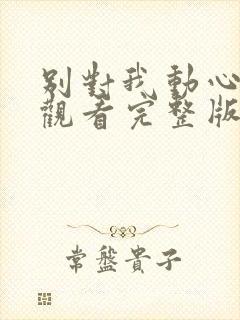 別對我動心
觀看完整版
常盤貴子